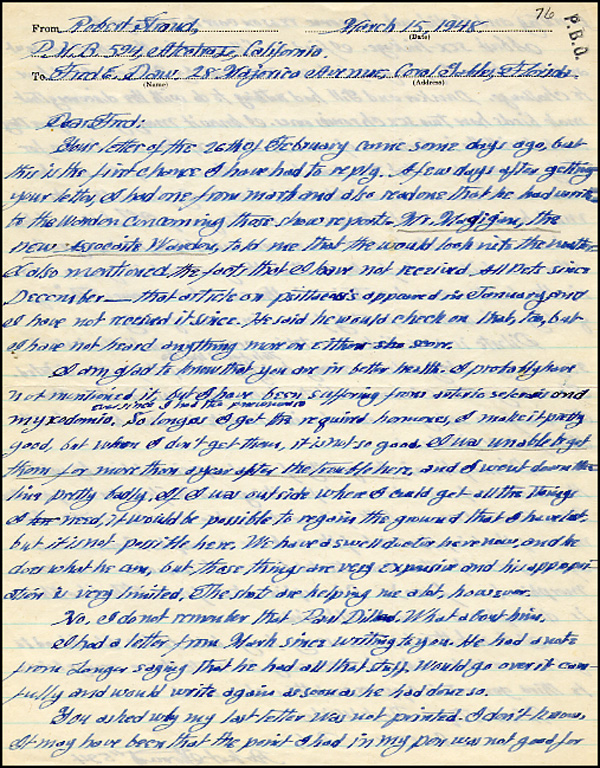 76
P.B.O.
From Robert Stroud, March 15, 1948
(Date)
P.M.B. 594, Alcatraz, California.
To Fred E. Daw, 28 Majorica Avenue, Coral Gables, Florida.
(Name) (Address)
Dear Fred:
Your letter of the 26th of February came some days ago, but
this is the first chance I have had to reply. A few days after getting
your letter, I had one from Mark and also read one that he had wrote
to the Warden concerning those show reports. Mr. Madigan, the
new Associate Warden, told me that he would look into the matter.
I also mentioned the facts that I have not received All Pets since
December — that article on psittacosis appeared in January and
I have not received it since. He said he would check on that, too, but
I have not heard anything more on either score.
I am glad to know that you are in better health. I probably have
not mentioned it, but I have been suffering from and
ever since I had the pneumonia
myxodemia. So long as I get the required hormones, I make it pretty
good, but when I don't get them, it is not so good. I was unable to get
them for more than a year after the trouble here, and I went down the
line pretty badly. If I was outside where I could get all the things
I need, it would be possible to regain the ground that I have lost,
but it is not possible here. We have a swell doctor here now, and he
does what he can, but these things are very expensive and his appopri-
ation is very limited. The shots are helping me a lot, however.
No, I do not remember that Paul. What about him.
I had a letter from Mark since writing to you. He had a note
from Langer saying that he had all that stuff. Would go over it care-
fully and would write again as soon as he had done so.
You asked why my last letter was not printed. I don't know.
It may have been that the point I had in my pen was not good for